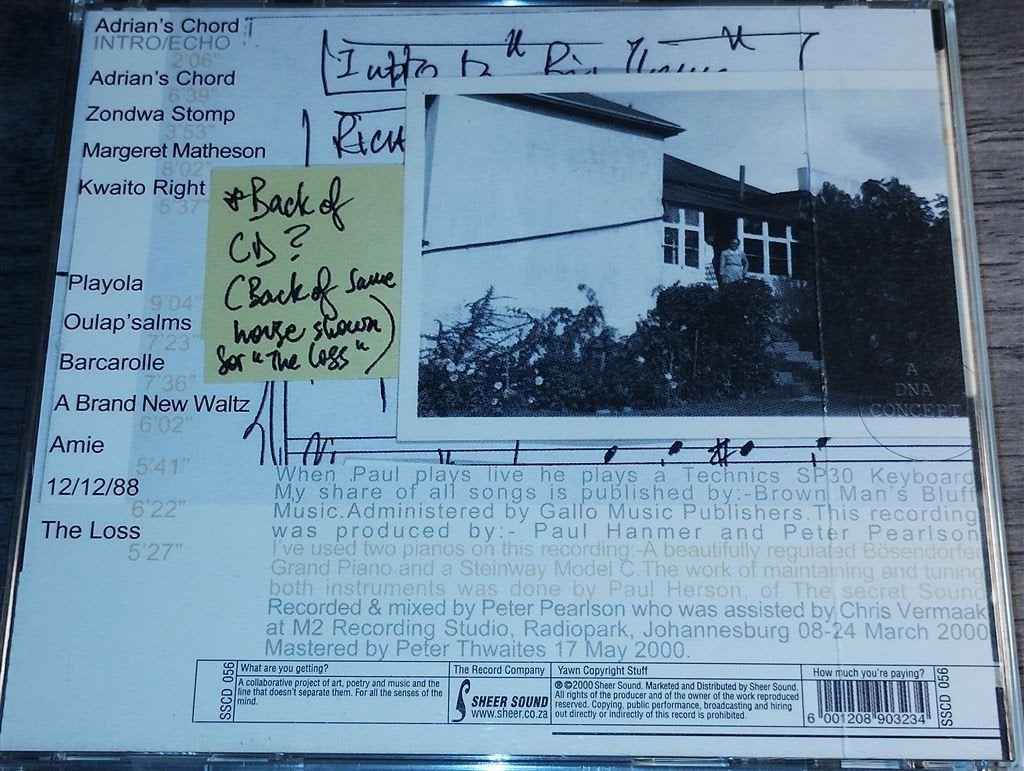 Adrian's Chord
INTRO/ECHO
2'06"
Adrian's Chord
6'39"
Zondwa Stomp
3'53"
Margeret Matheson
8'02"
Kwaito Right
5'37"
Playola
9'04"
Oulap'salms
7'23"
Barcarolle
7'36"
A Brand New Waltz
6'02"
Amie
5'41"
12/12/88
6'22"
The Loss
5'27"
Intro to
RICH
*Back of
CD?
(Back of same
house shown
for "The Loss")
A
DNA
CONCEPT
When Paul plays live he plays a Technics SP30 Keyboard
My share of all songs is published by:-Brown Man's Bluff
Music.Administered by Gallo Music Publishers.This recording
was produced by:- Paul Hanmer and Peter Pearlson
I've used two pianos on this recording:-A beautifully regulated Bösendorfer
Grand Piano and a Steinway Model C.The work of maintaining and tuning
both instruments was done by Paul Herson, of The secret Sound
Recorded & mixed by Peter Pearlson who was assisted by Chris Vermaak
at M2 Recording Studio, Radiopark, Johannesburg 08-24 March 2000
Mastered by Peter Thwaites 17 May 2000.
SSCD 056
What are you getting?
A collaborative project of art, poetry and music and the
line that doesn't separate them. For all the senses of the
mind.
The Record Company
SHEER SOUND
www.sheer.co.za
Yawn Copyright Stuff
℗©2000 Sheer Sound. Marketed and Distributed by Sheer Sound.
All rights of the producer and of the owner of the work reproduced
reserved. Copying, public performance, broadcasting and hiring
out directly or indirectly of this record is prohibited.
How much you're paying?
6 001208 903234
SSCD 056